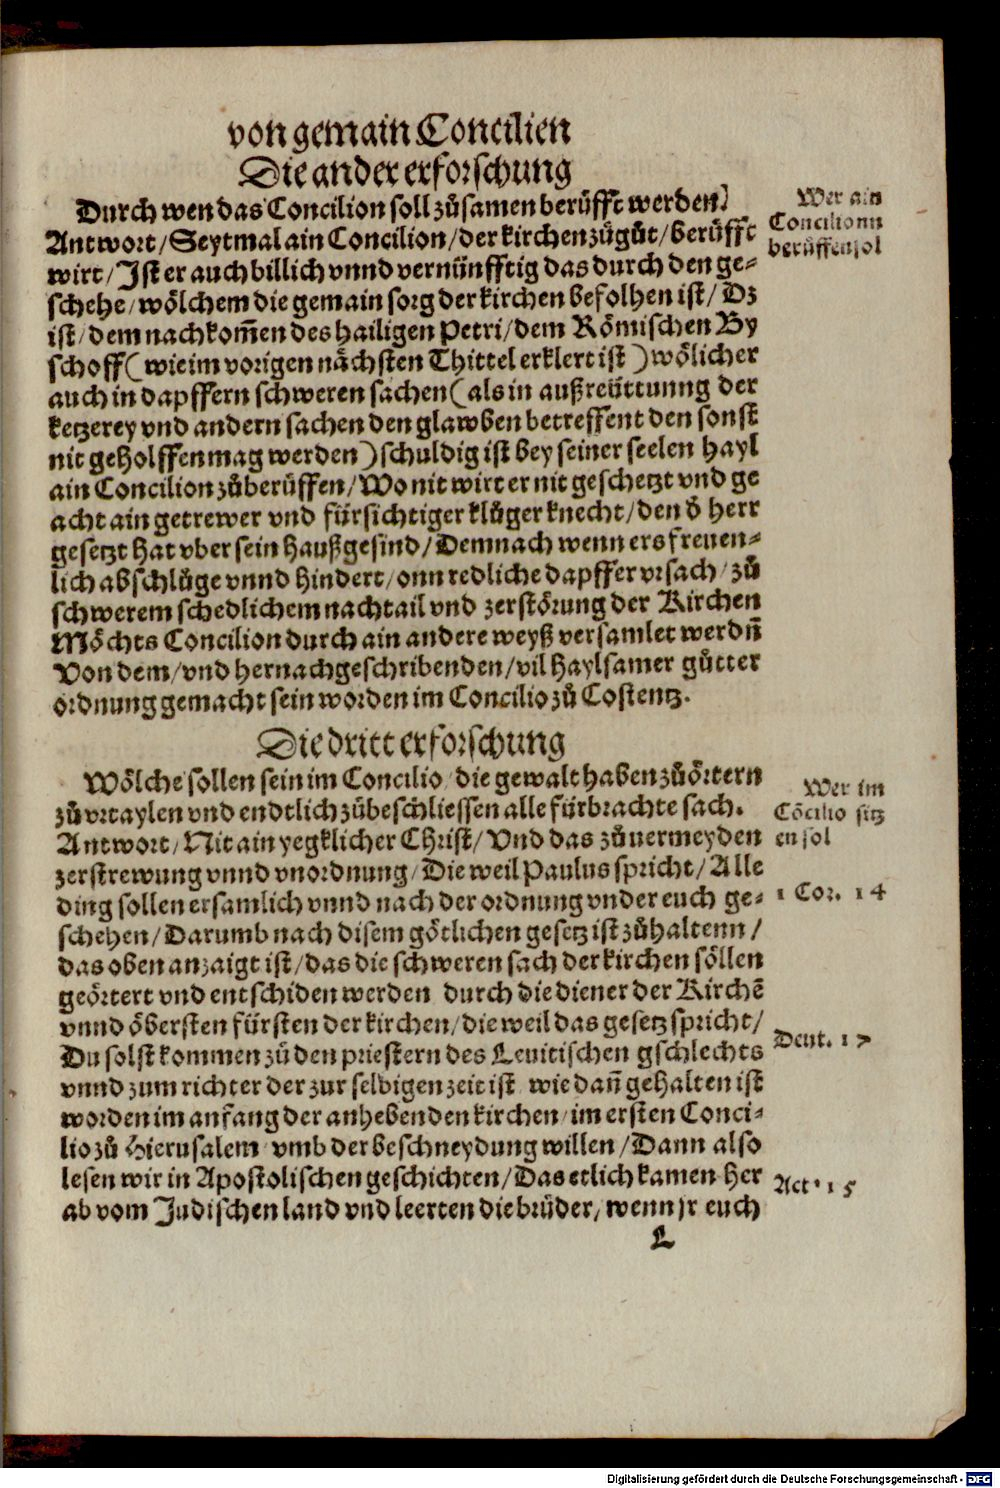 von gemain Concilien
Die ander erforschung
Durch wen das Concilion soll zůsamen berůfft werden?
Wer ain
Concilionn
berůffen sol
Antwort/ Seytmal ain Concilion/ der kirchen zůgůt/ berůfft
wirt/ Jst er auch billich vnnd vernünfftig das durch den ge-
schehe/ wölchem die gemain sorg der kirchen befolhen ist/ Dz
ist/ dem nachkom̃en des hailigen Petri/ dem Römischen By
schoff (wie im vorigen nächsten Thittel erklert ist) wölicher
auch in dapffern schweren sachen (als in außreüttunng der
ketzerey vnd andern sachen den glawben betreffent den sonst
nit geholffen mag werden) schuldig ist bey seiner seelen hayl
ain Concilion zůberůffen/ Wo nit wirt er nit geschetzt vnd ge
acht ain getrewer vnd fürsichtiger klůger knecht/ den d̕ herr
gesetzt hat vber sein haußgesind/ Demnach wenn ers freuen-
lich abschlůge vnnd hindert/ onn redliche dapffer vrsach/ zů
schwerem schedlichem nachtail vnd zerstörung der Kirchen
Möchts Concilion durch ain andere weyß versamlet werdn̄
Von dem/ vnd hernachgeschribenden/ vil haylsamer gůtter
ordnung gemacht sein worden im Concilio zů Costentz.
Die dritt erforschung
Wölche sollen sein im Concilio/ die gewalt haben zůörtern
zů vrtaylen vnd endtlich zůbeschliessen alle fürbrachte sach.
Wer im
Cōcilio sitz
en sol
Antwort/ Nit ain yegklicher Christ/ Vnd das zůuermeyden
zerstrewung vnnd vnordnung/ Die weil Paulus spricht/ Alle
ding sollen ersamlich vnnd nach der ordnung vnder euch ge-
1 Cor. 14
schehen/ Darumb nach disem götlichen gesetz ist zůhaltenn/
das oben anzaigt ist/ das die schweren sach der kirchen söllen
geörtert vnd entschiden werden durch die diener der Kirchē
vnnd öbersten fürsten der kirchen/ die weil das gesetz spricht/
Du solst kommen zů den priestern des Leuitischen gschlechts
Deut. 17
vnnd zum richter der zur selbigen zeit ist wie dañ gehalten ist
worden im anfang der anhebenden kirchen/ im ersten Conci-
lio zů Hierusalem/ vmb der beschneydung willen/ Dann also
lesen wir in Apostolischen geschichten/ Das etlich kamen her
Act. 15
ab vom Judischen land vnd leerten die brüder/ wenn jr euch
L
Digitalisierung gefördert durch die Deutsche Forschungsgemeinschaft - DFG